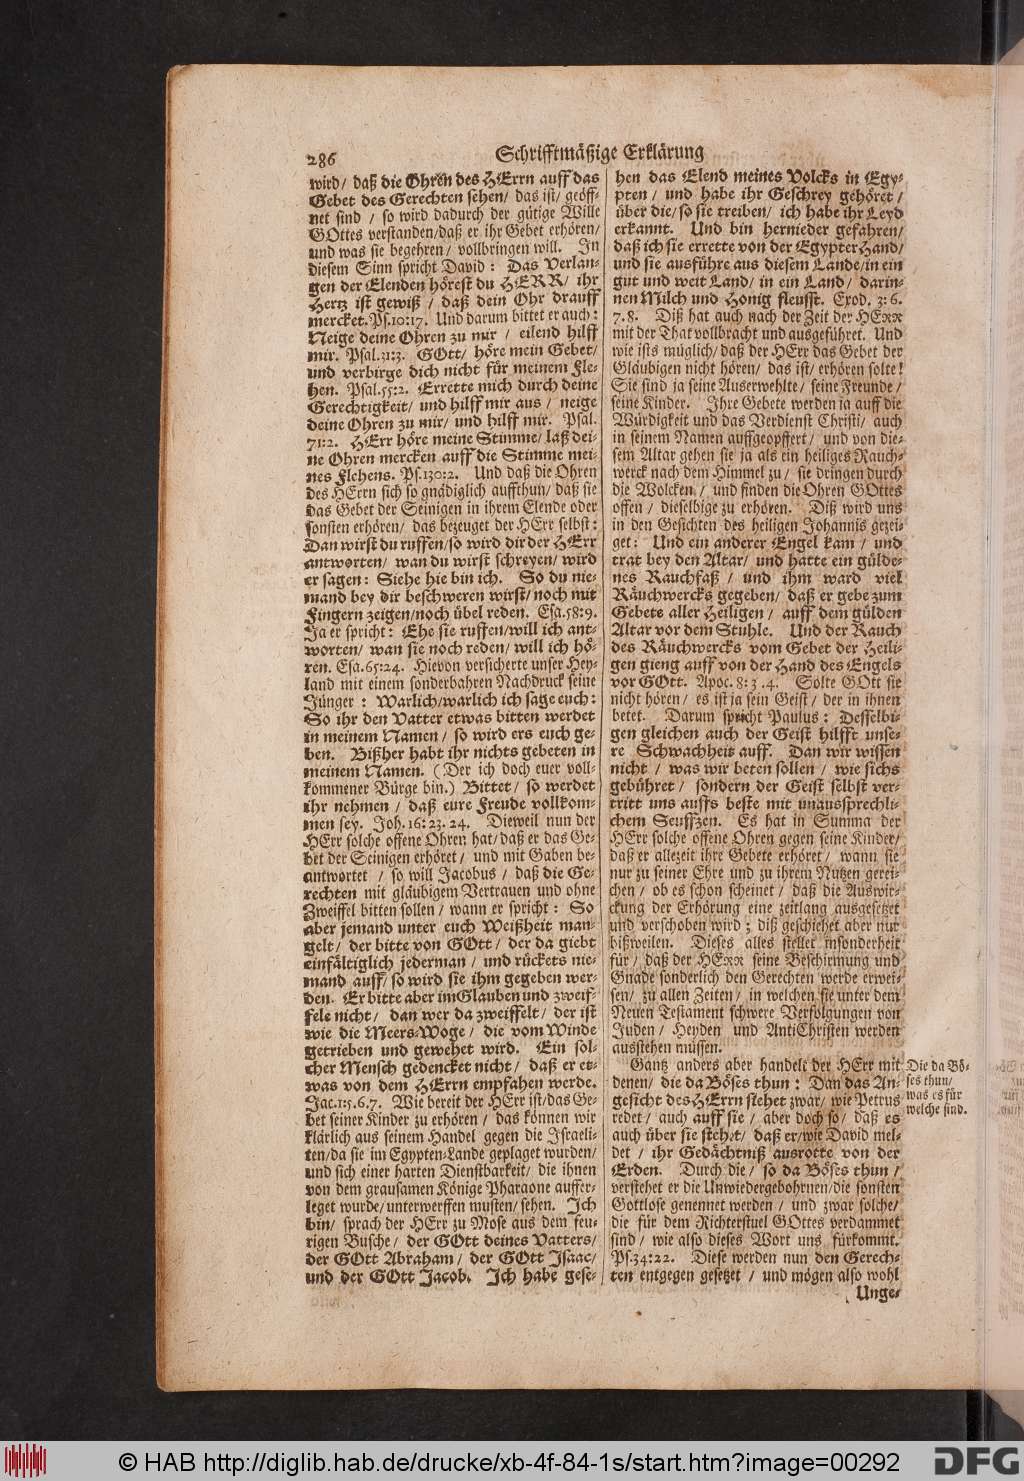 286
Schrifftmäßige Erklärung
wird/ daß die Ohren des HErrn auff das
Gebet des Gerechten sehen/ das ist/ geöff-
net sind / so wird dadurch der gütige Wille
GOttes verstanden/daß er ihr Gebet erhören/
und was sie begehren/ vollbringen will. In
diesem Sinn spricht David: Das Verlan-
gen der Elenden hörest du HERR/ ihr
Hertz ist gewiß / daß dein Ohr drauff
mercket. Ps.10:17. Und darum bittet er auch:
Neige deine Ohren zu mir / eilend hilff
mir. Psal.31:3. GOtt/ höre mein Gebet/
und verbirge dich nicht für meinem Fle-
hen. Psal.55:2. Errette mich durch deine
Gerechtigkeit/ und hilff mir aus / neige
deine Ohren zu mir/ und hilff mir. Psal.
71:2. HErr höre meine Stimme/ laß dei-
ne Ohren mercken auff die Stimme mei-
nes Flehens. Ps.130:2. Und daß die Ohren
des HErrn sich so gnädiglich auffthun/ daß sie
das Gebet der Seinigen in ihrem Elende oder
sonsten erhören/ das bezeuget der HErr selbst:
Dan wirst du ruffen/so wird dir der HErr
antworten/ wan du wirst schreyen/ wird
er sagen: Siehe hie bin ich. So du nie-
mand bey dir beschweren wirst/ noch mit
Fingern zeigen/noch übel reden. Esa.58:9.
Ja er spricht: Ehe sie ruffen/will ich ant-
worten/ wan sie noch reden/ will ich hö-
ren. Esa.65:24. Hievon versicherte unser Hey-
land mit einem sonderbahren Nachdruck seine
Jünger: Warlich/warlich ich sage euch:
So ihr den Vatter etwas bitten werdet
in meinem Namen/ so wird ers euch ge-
ben. Bißher habt ihr nichts gebeten in
meinem Namen. (Der ich doch euer voll-
kommener Bürge bin.) Bittet/ so werdet
ihr nehmen / daß eure Freude vollkom-
men sey. Joh.16:23.24. Dieweil nun der
HErr solche offene Ohren hat/daß er das Ge-
bet der Seinigen erhöret/ und mit Gaben be-
antwortet / so will Jacobus / daß die Ge-
rechten mit gläubigem Vertrauen und ohne
Zweiffel bitten sollen/ wann er spricht: So
aber jemand unter euch Weißheit man-
gelt/ der bitte von GOtt/ der da giebt
einfältiglich jederman / und rückets nie-
mand auff/ so wird sie ihm gegeben wer-
den. Er bitte aber im Glauben und zweif-
fele nicht/ dan wer da zweiffelt/ der ist
wie die Meers-Woge / die vom Winde
getrieben und gewehet wird. Ein sol-
cher Mensch gedencket nicht/ daß er et-
was von dem HErrn empfahen werde.
Jac.1:5.6.7. Wie bereit der HErr ist/das Ge-
bet seiner Kinder zu erhören / das können wir
klärlich aus seinem Handel gegen die Israeli-
ten/da sie im Egypten-Lande geplaget wurden/
und sich einer harten Dienstbarkeit/ die ihnen
von dem grausamen Könige Pharaone auffer-
leget wurde/unterwerffen musten/sehen. Ich
bin/ sprach der HErr zu Mose aus dem feu-
rigen Busche/ der GOtt deines Vatters/
der GOtt Abraham/ der GOtt Isaac/
und der GOtt Jacob. Ich habe gese-
hen das Elend meines Volcks in Egy-
pten / und habe ihr Geschrey gehöret/
über die/ so sie treiben/ ich habe ihr Leyd
erkannt. Und bin hernieder gefahren/
daß ich sie errette von der Egypter Hand/
und sie ausführe aus diesem Lande/in ein
gut und weit Land/ in ein Land/ darin-
nen Milch und Honig fleusst. Exod. 3:6.
7.8. Diß hat auch nach der Zeit der HERR
mit der That vollbracht und ausgeführet. Und
wie ists müglich/ daß der HErr das Gebet der
Gläubigen nicht hören/ das ist/ erhören solte!
Sie sind ja seine Auserwehlte/ seine Freunde/
seine Kinder. Ihre Gebete werden ja auff die
Würdigkeit und das Verdienst Christi/ auch
in seinem Namen auffgeopffert/ und von die-
sem Altar gehen sie ja als ein heiliges Rauch-
werck nach dem Himmel zu/ sie dringen durch
die Wolcken / und finden die Ohren GOttes
offen / dieselbige zu erhören. Diß wird uns
in den Gesichten des heiligen Johannis gezei-
get: Und ein anderer Engel kam / und
trat bey den Altar/ und hatte ein gülde-
nes Rauchfaß / und ihm ward viel
Räuchwercks gegeben/ daß er gebe zum
Gebete aller Heiligen/ auff dem gülden
Altar vor dem Stuhle. Und der Rauch
des Räuchwercks vom Gebet der Heili-
gen gieng auff von der Hand des Engels
vor GOtt. Apoc. 8:3.4. Solte GOtt sie
nicht hören/ es ist ja sein Geist/ der in ihnen
betet. Darum spricht Paulus: Desselbi-
gen gleichen auch der Geist hilfft unse-
re Schwachheit auff. Dan wir wissen
nicht / was wir beten sollen / wie sichs
gebühret/ sondern der Geist selbst ver-
tritt uns auffs beste mit unaussprechli-
chem Seuffzen. Es hat in Summa der
HErr solche offene Ohren gegen seine Kinder/
daß er allezeit ihre Gebete erhöret/ wann sie
nur zu seiner Ehre und zu ihrem Nutzen gerei-
chen/ ob es schon scheinet/ daß die Auswir-
ckung der Erhörung eine zeitlang ausgesetzet
und verschoben wird; diß geschiehet aber nur
bißweilen. Dieses alles stellet insonderheit
für/ daß der HERR seine Beschirmung und
Gnade sonderlich den Gerechten werde erwei-
sen/ zu allen Zeiten/ in welchen sie unter dem
Neuen Testament schwere Verfolgungen von
Juden/ Heyden und AntiChristen werden
ausstehen müssen.
Gantz anders aber handelt der HErr mit
denen/ die da Böses thun: Dan das An-
gesicht des HErrn stehet zwar/ wie Petrus
redet/ auch auff sie / aber doch so / daß es
auch über sie stehet/ daß er/wie David mel-
det / ihr Gedächtniß ausrotte von der
Erden. Durch die / so da Böses thun /
verstehet er die Unwiedergebohrnen/die sonsten
Gottlose genennet werden/ und zwar solche/
die für dem Richterstuel GOttes verdammet
sind/ wie also dieses Wort uns fürkommt.
Ps.34:22. Diese werden nun den Gerech-
ten entgegen gesetzet / und mögen also wohl
Unge-
Die da Bö-
ses thun/
was es für
welche sind.
© HAB http://diglib.hab.de/drucke/xb-4f-84-1s/start.htm?image=00292
DFG